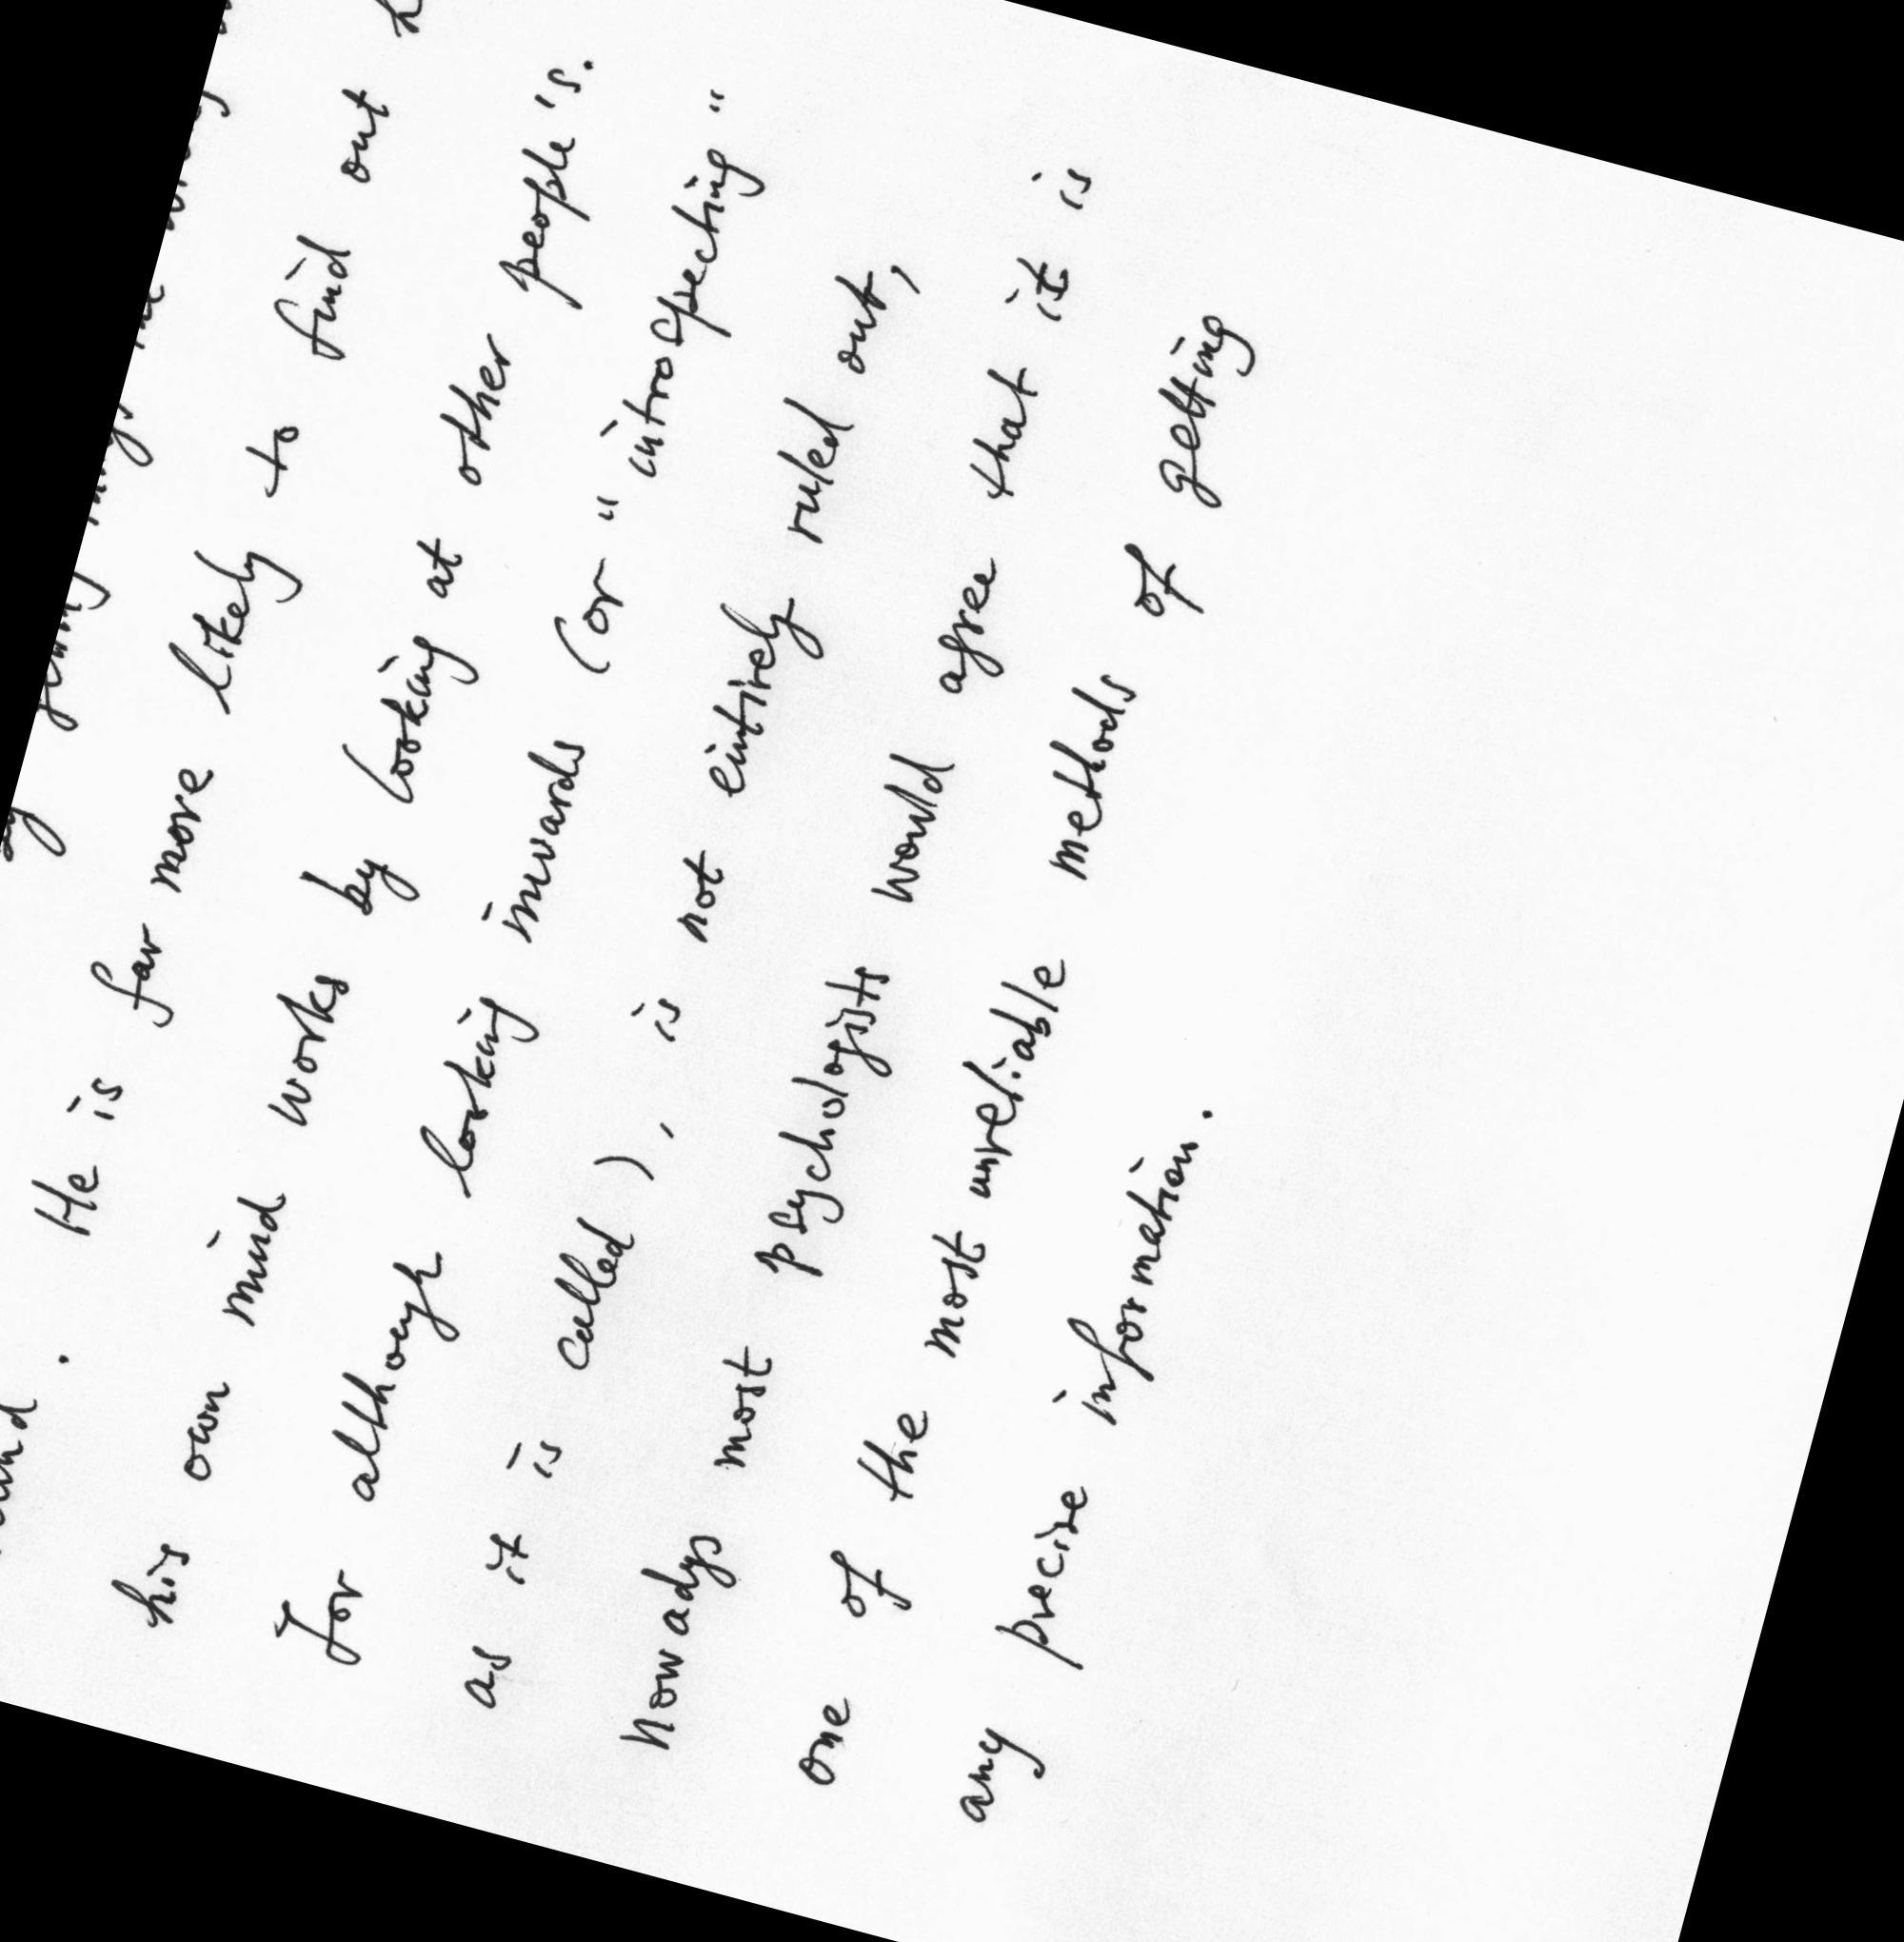 . He is far more likely to find out
his own mind works by looking at other people's.
For although looking inwards (or "introspecting"
as it is called), is not eintirely ruled out,
nowadys most psychologists would agree that it is
one of the most unreliable methods of getting
any precise information.